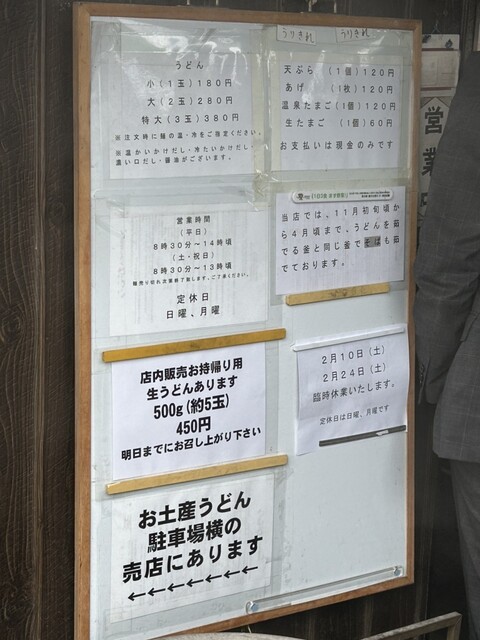 うどん
小(1玉)180円
大(2玉)280円
特大(3玉)380円
※注文時に麺の温・冷をご指定ください。
※温かいかけだし・冷たいかけだし・
濃い口だし・醤油がございます。
うりきれ
うりきれ
天ぷら (1個)120円
あげ (1枚)120円
温泉たまご(1個)120円
生たまご (1個)60円
お支払いは現金のみです
営業時間
(平日)
8時30分~14時頃
(土・祝日)
8時30分~13時頃
麺売り切れ次第終了致します、ご了承ください。
定休日
日曜、月曜
当店では、11月初旬頃か
ら4月頃まで、うどんを茹
でる釜と同じ釜でそばも茹
でております。
店内販売お持帰り用
生うどんあります
500g(約5玉)
450円
明日までにお召し上がり下さい
2月10日(土)
2月24日(土)
臨時休業いたします。
定休日は日曜、月曜です
お土産うどん
駐車場横の
売店にあります
←←←←←←←
営業